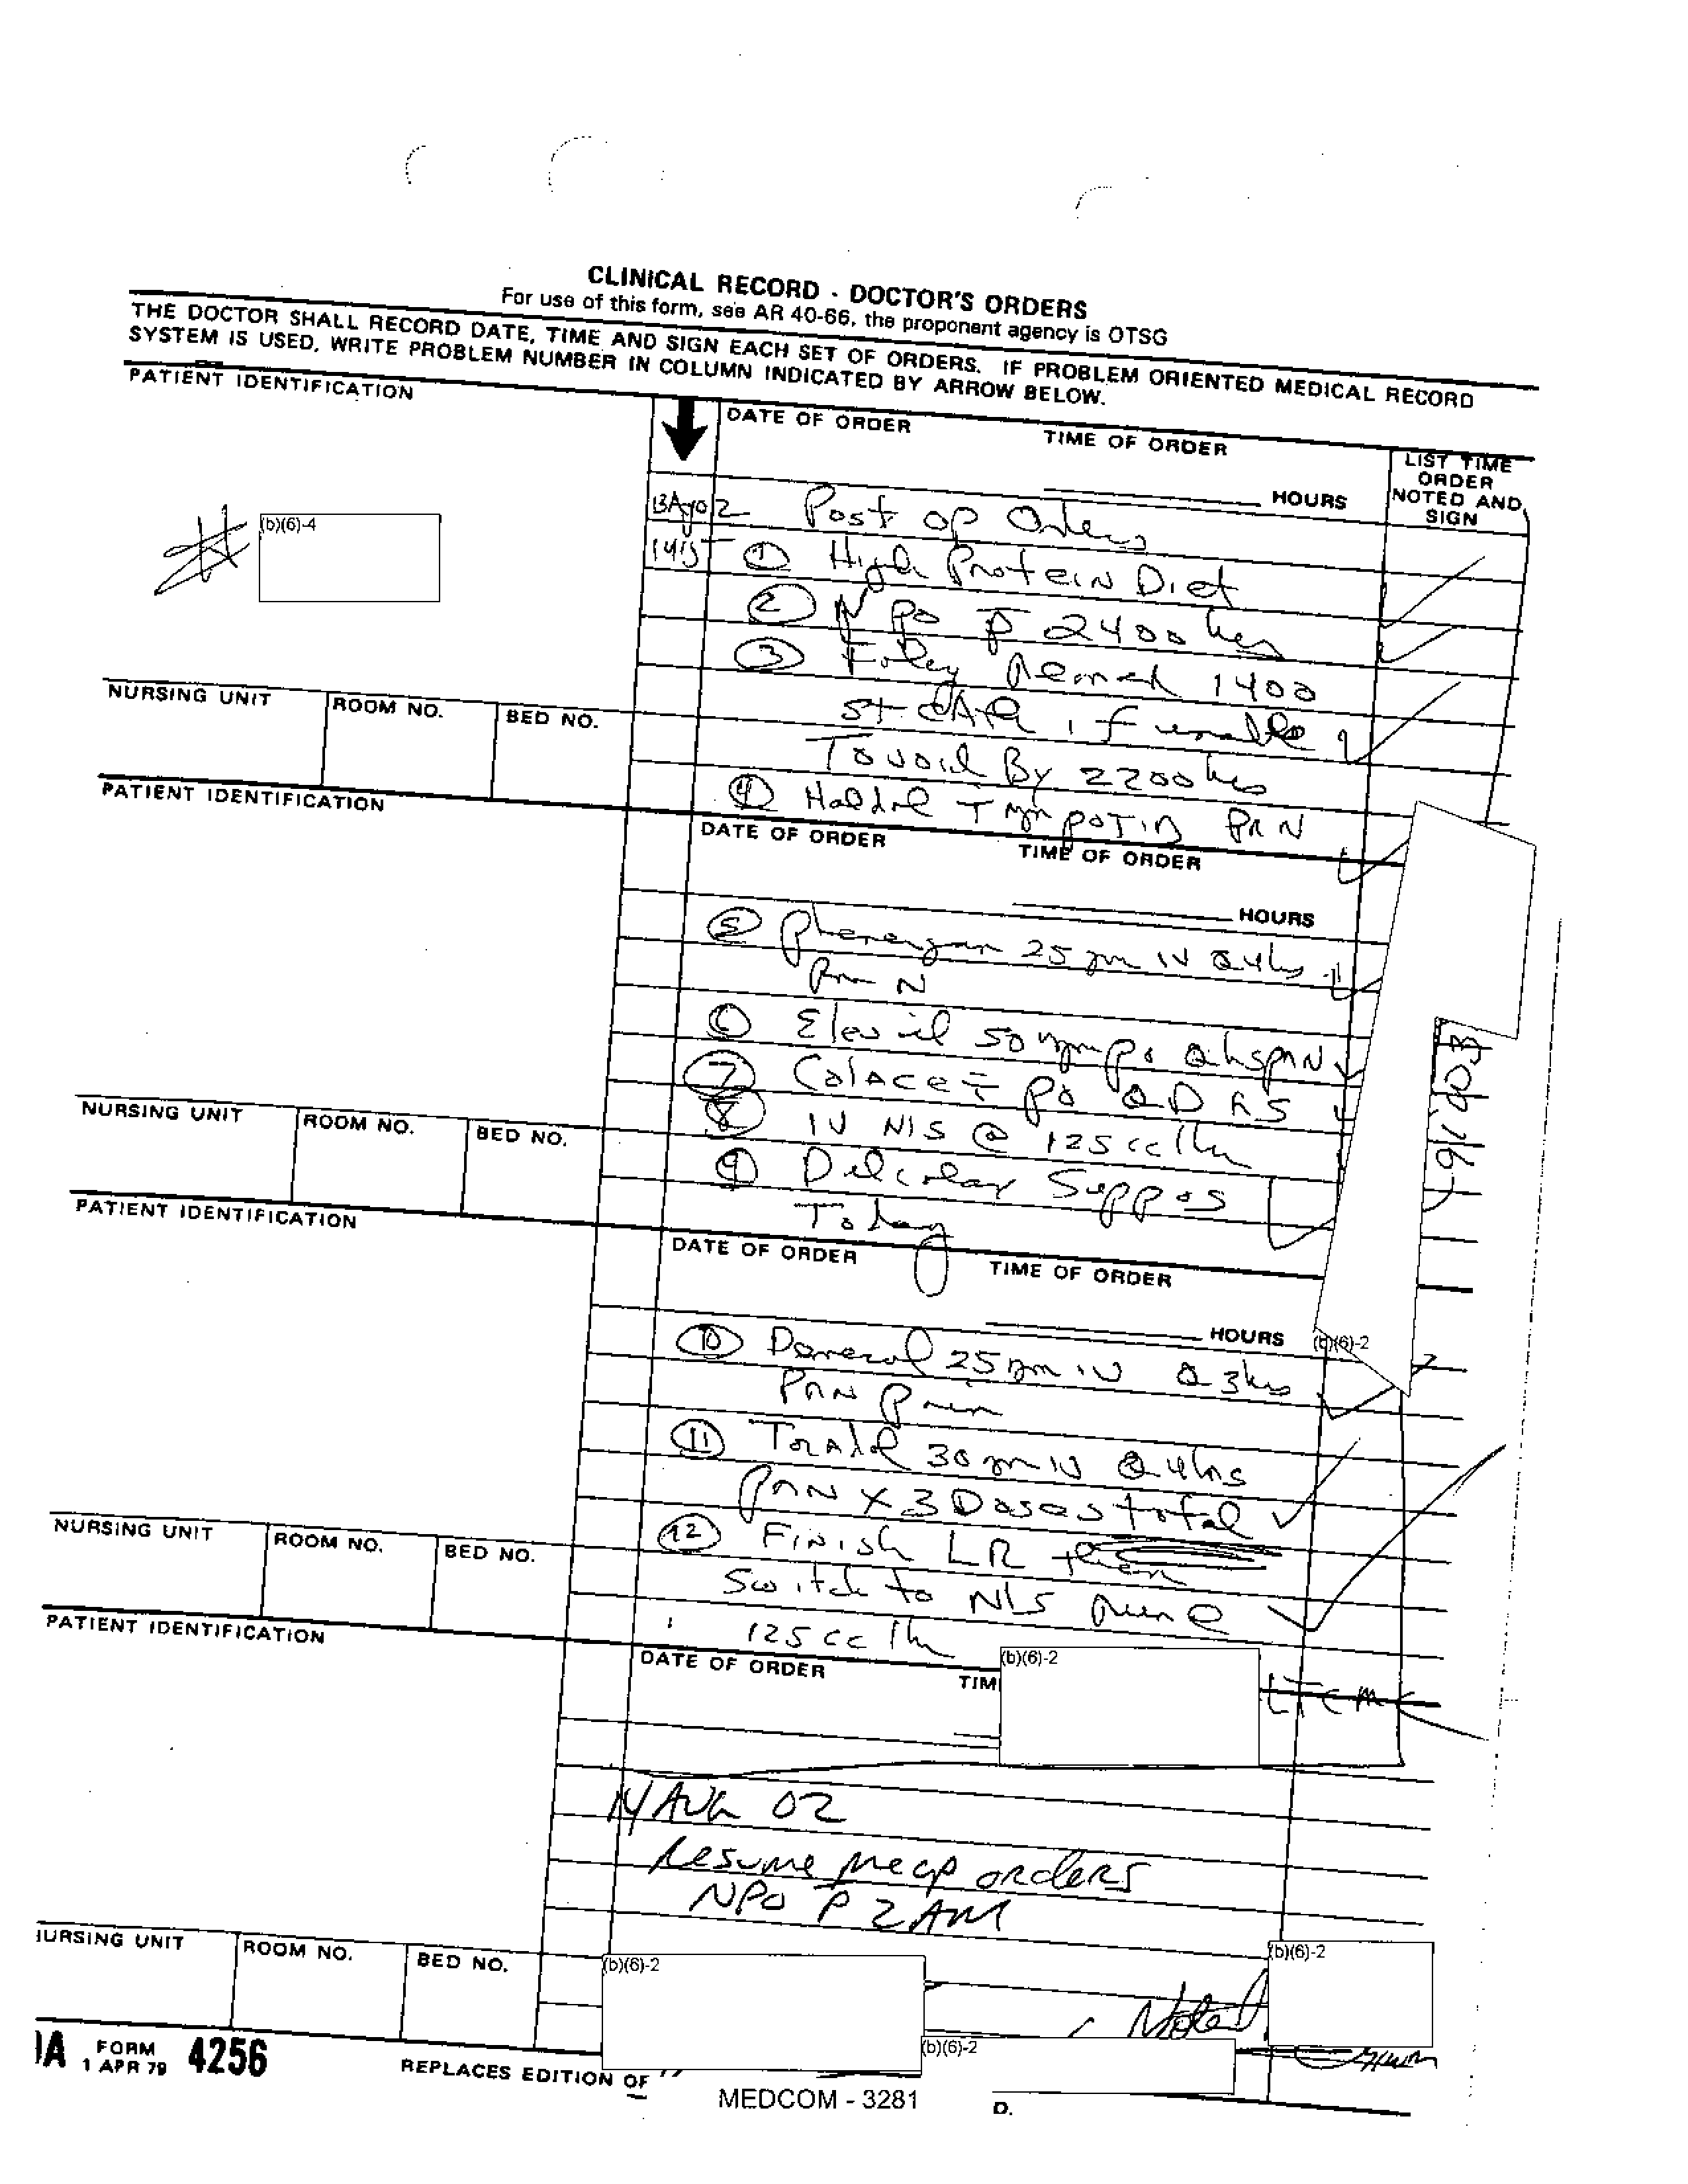 CLINICAL RECORD - DOCTOR'S ORDERS
For use of this form, see AR 40-66, the proponent agency is OTSG
THE DOCTOR SHALL RECORD DATE, TIME AND SIGN EACH SET OF ORDERS. IF PROBLEM ORIENTED MEDICAL RECORD
SYSTEM IS USED, WRITE PROBLEM NUMBER IN COLUMN INDICATED BY ARROW BELOW.
PATIENT IDENTIFICATION
DATE OF ORDER
TIME OF ORDER
HOURS
LIST TIME
ORDER
NOTED AND
SIGN
(b)(6)-4
Post op Orders
① High Protein Diet
② NPO P̄ 2400 hrs
③ Foley
1400
St cath if unable
To void By 2200 hrs
NURSING UNIT
ROOM NO.
BED NO.
④
PRN
PATIENT IDENTIFICATION
DATE OF ORDER
TIME OF ORDER
HOURS
⑤ Phenergan 25 gm IV Q4hs
⑥ 50 po QhsPRN
⑦ Colace po QD
⑧ IV N/S @ 125 cc/hr
NURSING UNIT
ROOM NO.
BED NO.
⑨ Dulcolax Suppos
Today
PATIENT IDENTIFICATION
DATE OF ORDER
TIME OF ORDER
HOURS
(b)(6)-2
⑩ 25 IV Q3hrs
PRN Pain
⑪ Toradol 30 IV Q4hrs
PRN X 3 Doses total
⑫ Finish LR then
Switch to N/S
125 cc/hr
NURSING UNIT
ROOM NO.
BED NO.
PATIENT IDENTIFICATION
DATE OF ORDER
TIM
(b)(6)-2
14 AUG 02
Resume preop orders
NPO P̄ 2 AM
NURSING UNIT
ROOM NO.
BED NO.
(b)(6)-2
(b)(6)-2
Noted
(b)(6)-2
DA FORM 4256
1 APR 79
REPLACES EDITION OF
MEDCOM - 3281
D.